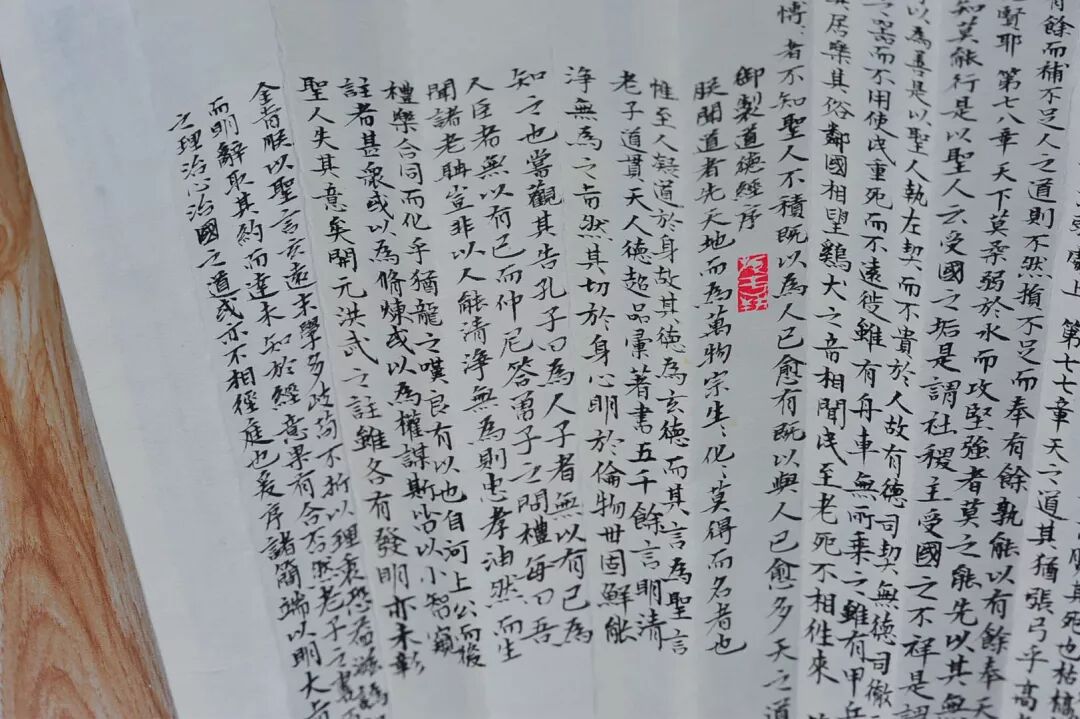 其死也枯槁
處上 第七七章 天之道其猶張弓乎高
有餘而補不足人之道則不然損不足而奉有餘孰能以有餘奉天
賢耶 第七八章 天下莫柔弱於水而攻堅強者莫之能先以其無
知莫能行是以聖人云受國之垢是謂社稷主受國之不祥是謂
以為善是以聖人執左契而不貴於人故有德司契無德司徹
之器而不用使民重死而不遠徙雖有舟車無所乘之雖有甲兵
居樂其俗鄰國相望雞犬之音相聞民至老死不相往來
博〻者不知聖人不積既以為人已愈有既以與人已愈多天之道
御製道德經序
朕聞道者先天地而為萬物宗生〻化〻莫得而名者也
惟至人凝道於身故其德為玄德而其言為聖言
老子道貫天人德超品彙著書五千餘言明清
淨無為之旨然其切於身心明於倫物世固鮮能
知之也嘗觀其告孔子曰為人子者無以有己為
人臣者無以有已而仲尼答曾子之問禮每曰吾
聞諸老聃豈非以人能清淨無為則忠孝油然而生
禮樂合同而化乎猶龍之嘆良有以也自河上公而後
註者甚衆或以為修煉或以為權謀斯皆以小智窺
聖人失其意矣開元洪武之註雖各有發明亦未彰
全旨朕以聖言玄遠末學多歧苟不折以理衷恐益滋
而明辭取其約而達未知於經意果有合否然老子之書
之理治心治國之道或亦不相徑庭也爰序諸簡端以明大旨